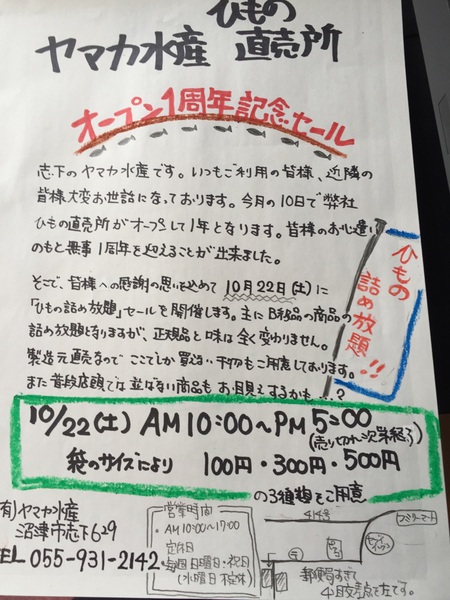 ひもの
ヤマカ水産 直売所
オープン1周年記念セール
志下のヤマカ水産です。いつもご利用の皆様、近隣の
皆様大変お世話になっております。今月の10日で弊社
ひもの直売所がオープンして1年となります。皆様のお心遣い
のもと無事1周年を迎えることが出来ました。
そこで、皆様への感謝の思いを込めて10月22日(土)に
「ひもの詰め放題」セールを開催します。主にB級品の商品の
詰め放題となりますが、正規品と味は全く変わりません。
製造元直売なので ここでしか買えない干物もご用意しております。
また普段店頭では並ばない商品もお目見えするかも...?
ひもの
詰め放題!!
10/22(土) AM10:00~PM5:00
(売り切れ次第終了)
袋のサイズにより 100円・300円・500円
の3種類をご用意
(有)ヤマカ水産
沼津市志下629
TEL 055-931-2142
営業時間
・AM10:00~17:00
定休日
・毎週日曜日・祝日
(水曜日不定休)
414号
ファミリーマート
セブンイレブン
郵便局すぎて